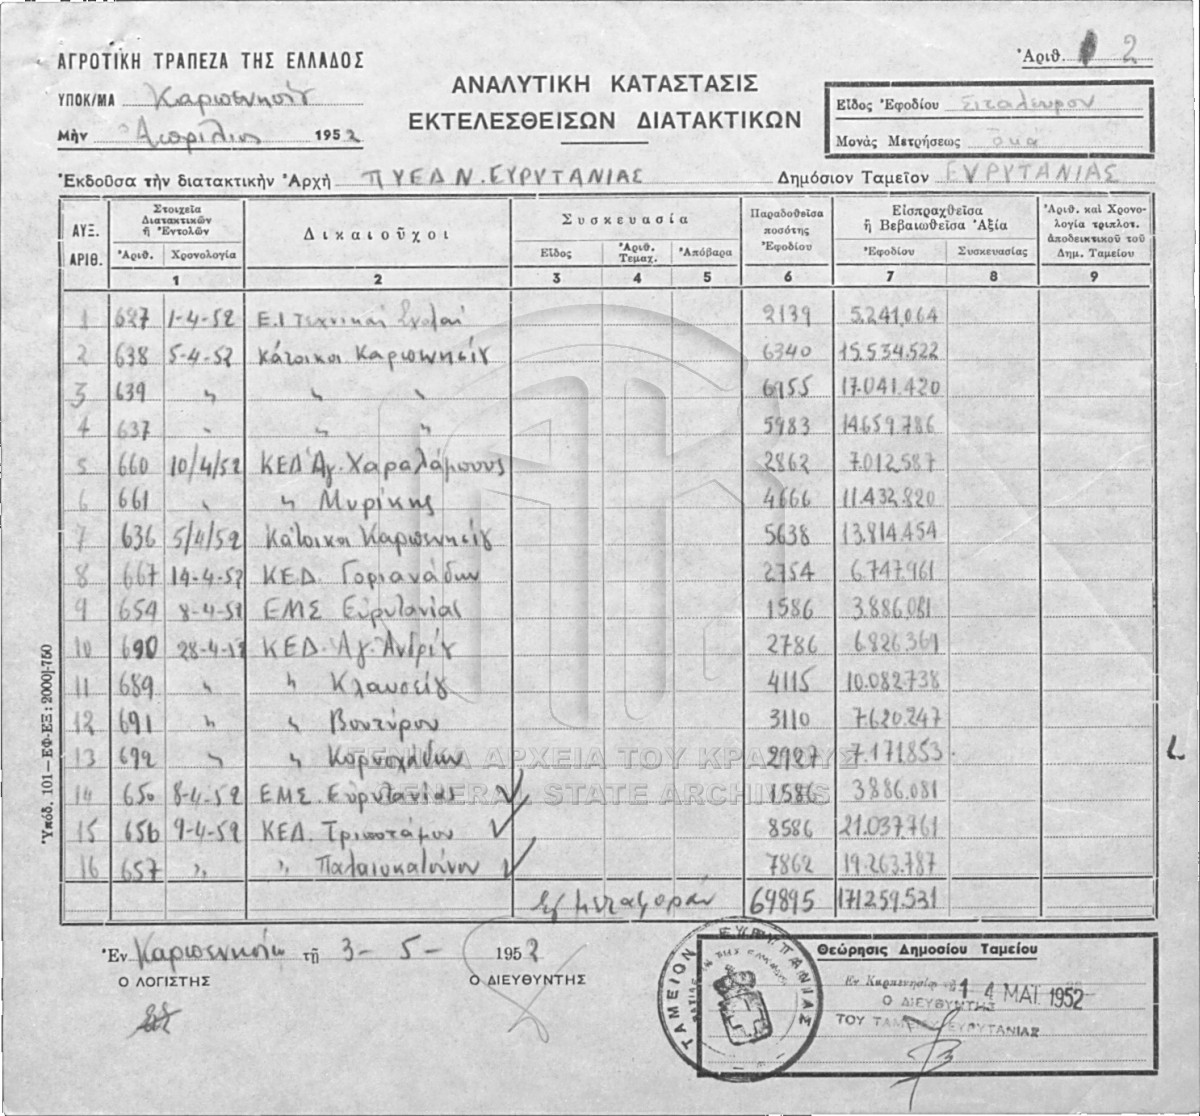 ΑΓΡΟΤΙΚΗ ΤΡΑΠΕΖΑ ΤΗΣ ΕΛΛΑΔΟΣ
Ἀριθ. 2
ΥΠΟΚ/ΜΑ Καρπενησίου
ΑΝΑΛΥΤΙΚΗ ΚΑΤΑΣΤΑΣΙΣ
Εἶδος Ἐφοδίου Σιταλευρον
Μὴν Ἀπρίλιος 1952
ΕΚΤΕΛΕΣΘΕΙΣΩΝ ΔΙΑΤΑΚΤΙΚΩΝ
Μονὰς Μετρήσεως ὀκά
Ἐκδοῦσα τὴν διατακτικὴν Ἀρχὴ ΠΥΕΔ Ν. ΕΥΡΥΤΑΝΙΑΣ Δημόσιον Ταμεῖον ΕΥΡΥΤΑΝΙΑΣ
ΑΥΞ. ΑΡΙΘ. Στοιχεῖα Διατακτικῶν ἢ Ἐντολῶν Δικαιοῦχοι Συσκευασία Παραδοθεῖσα ποσότης Ἐφοδίου Εἰσπραχθεῖσα ἢ Βεβαιωθεῖσα Ἀξία Ἀριθ. καὶ Χρονολογία τριπλοτ. ἀποδεικτικοῦ τοῦ Δημ. Ταμείου
Ἀριθ. Χρονολογία Εἶδος Ἀριθ. Τεμαχ. Ἀπόβαρα Ἐφοδίου Συσκευασίας
1 2 3 4 5 6 7 8 9
1 627 1-4-52 Ε.Ι Τεχνικαί Σχολαί 2139 5.241.064
2 638 5-4-52 Κάτοικοι Καρπενησίου 6340 15.534.522
3 639 " " " 6955 17.041.420
4 637 " " " 5983 14.659.786
5 660 10/4/52 ΚΕΔ Ἁγ. Χαραλάμπους 2862 7.012.587
6 661 " " Μυρίκης 4666 11.432.820
7 636 5/4/52 Κάτοικοι Καρπενησίου 5638 13.814.454
8 667 14-4-52 ΚΕΔ. Γοριανάδων 2754 6.747.961
9 654 8-4-52 ΕΜΣ Εὐρυτανίας 1586 3.886.081
10 690 28-4-52 ΚΕΔ. Ἁγ. Ἀνδρέου 2786 6.826.369
11 689 " " Κλαυσείου 4115 10.082.738
12 691 " " Βουτύρου 3110 7.620.247
13 692 " " Κορυσχάδων 2927 7.171.853
14 650 8-4-52 ΕΜΣ. Εὐρυτανίας 1586 3.886.081
15 656 9-4-52 ΚΕΔ. Τριποτάμου 8586 21.037.761
16 657 " " Παλαιοκατούνου 7862 19.263.787
Εἰς μεταφοράν 69895 171.259.531
ΓΕΝΙΚΑ ΑΡΧΕΙΑ ΤΟΥ ΚΡΑΤΟΥΣ
GENERAL STATE ARCHIVES
Ὑπόδ. 101—ΕΦ-ΕΞ: 2000]-750
Ἐν Καρπενησίῳ τῇ 3-5-1952
Ο ΛΟΓΙΣΤΗΣ Ο ΔΙΕΥΘΥΝΤΗΣ
ΤΑΜΕΙΟΝ ΕΥΡΥΤΑΝΙΑΣ
Θεώρησις Δημοσίου Ταμείου
Εν Καρπενησίῳ τῇ 14 ΜΑΪ. 1952
Ο ΔΙΕΥΘΥΝΤΗΣ
ΤΟΥ ΤΑΜΕΙΟΥ ΕΥΡΥΤΑΝΙΑΣ